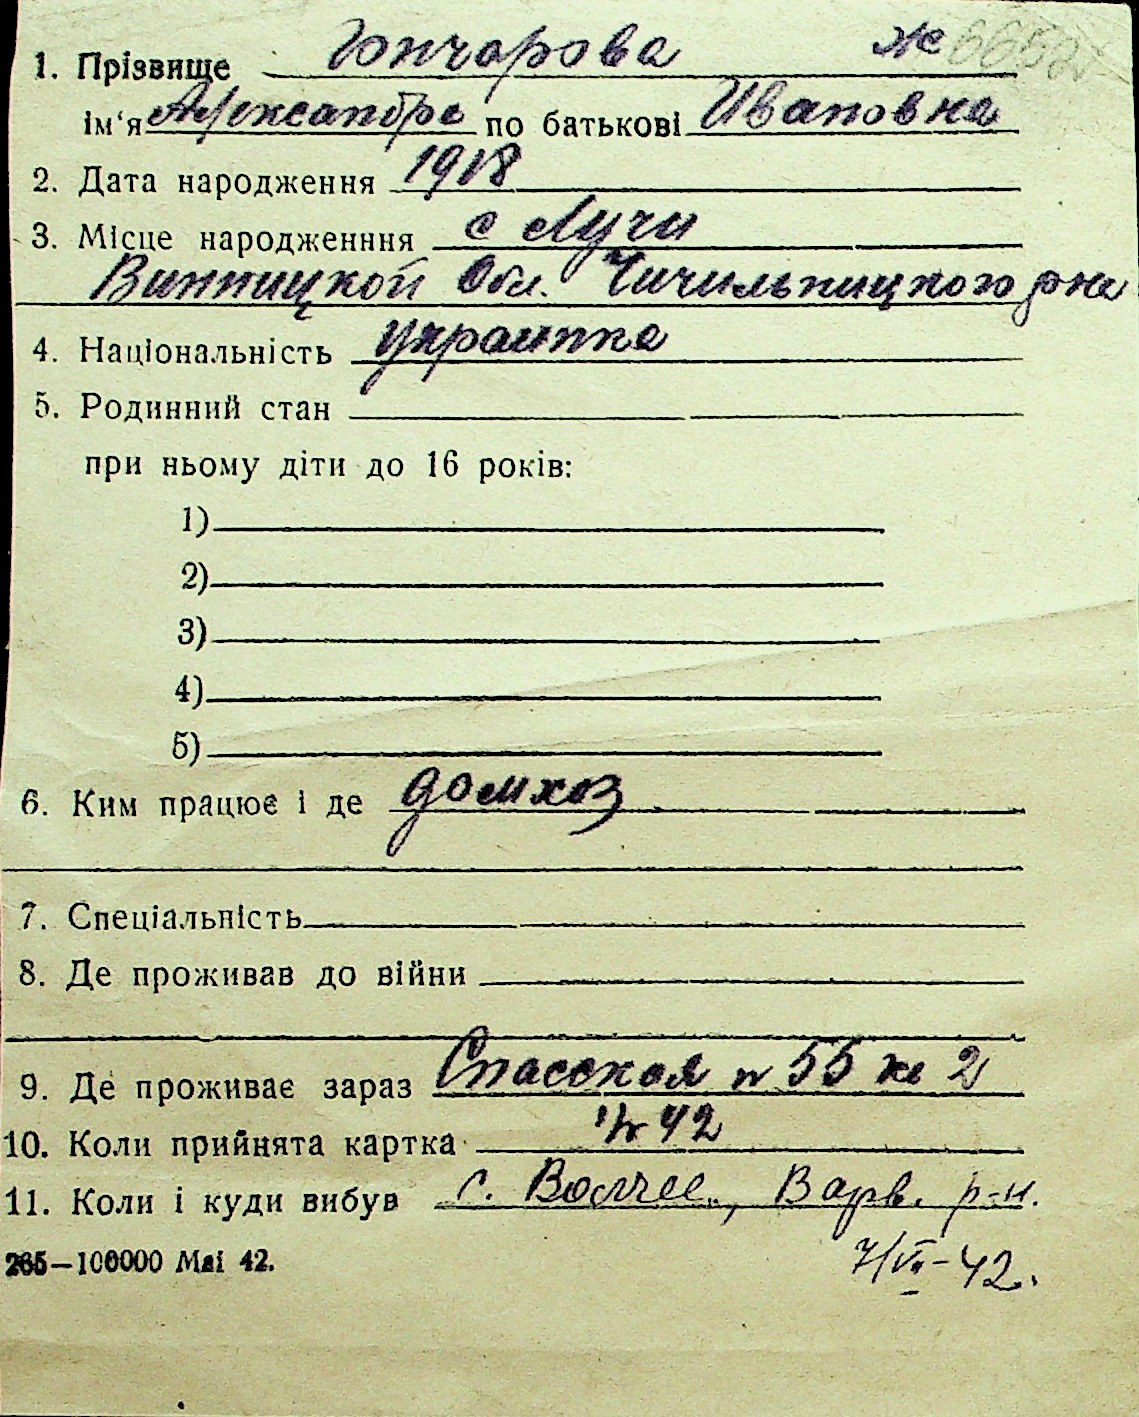 1. Прізвище Гончарова ж 6652
ім'я Александра по батькові Ивановна
2. Дата народження 1918
3. Місце народженння с Лучи
Винницкой Обл. Чичильницкого рна
4. Національність украинка
5. Родинний стан
при ньому діти до 16 років:
1)
2)
3)
4)
5)
6. Ким працює і де домхоз
7. Спеціальність
8. Де проживав до війни
9. Де проживає зараз Спасская № 55 кв 2
10. Коли прийнята картка 42
11. Коли і куди вибув с. Волчье, Варв. р-н.
265—100000 Маі 42.
7/VI-42.